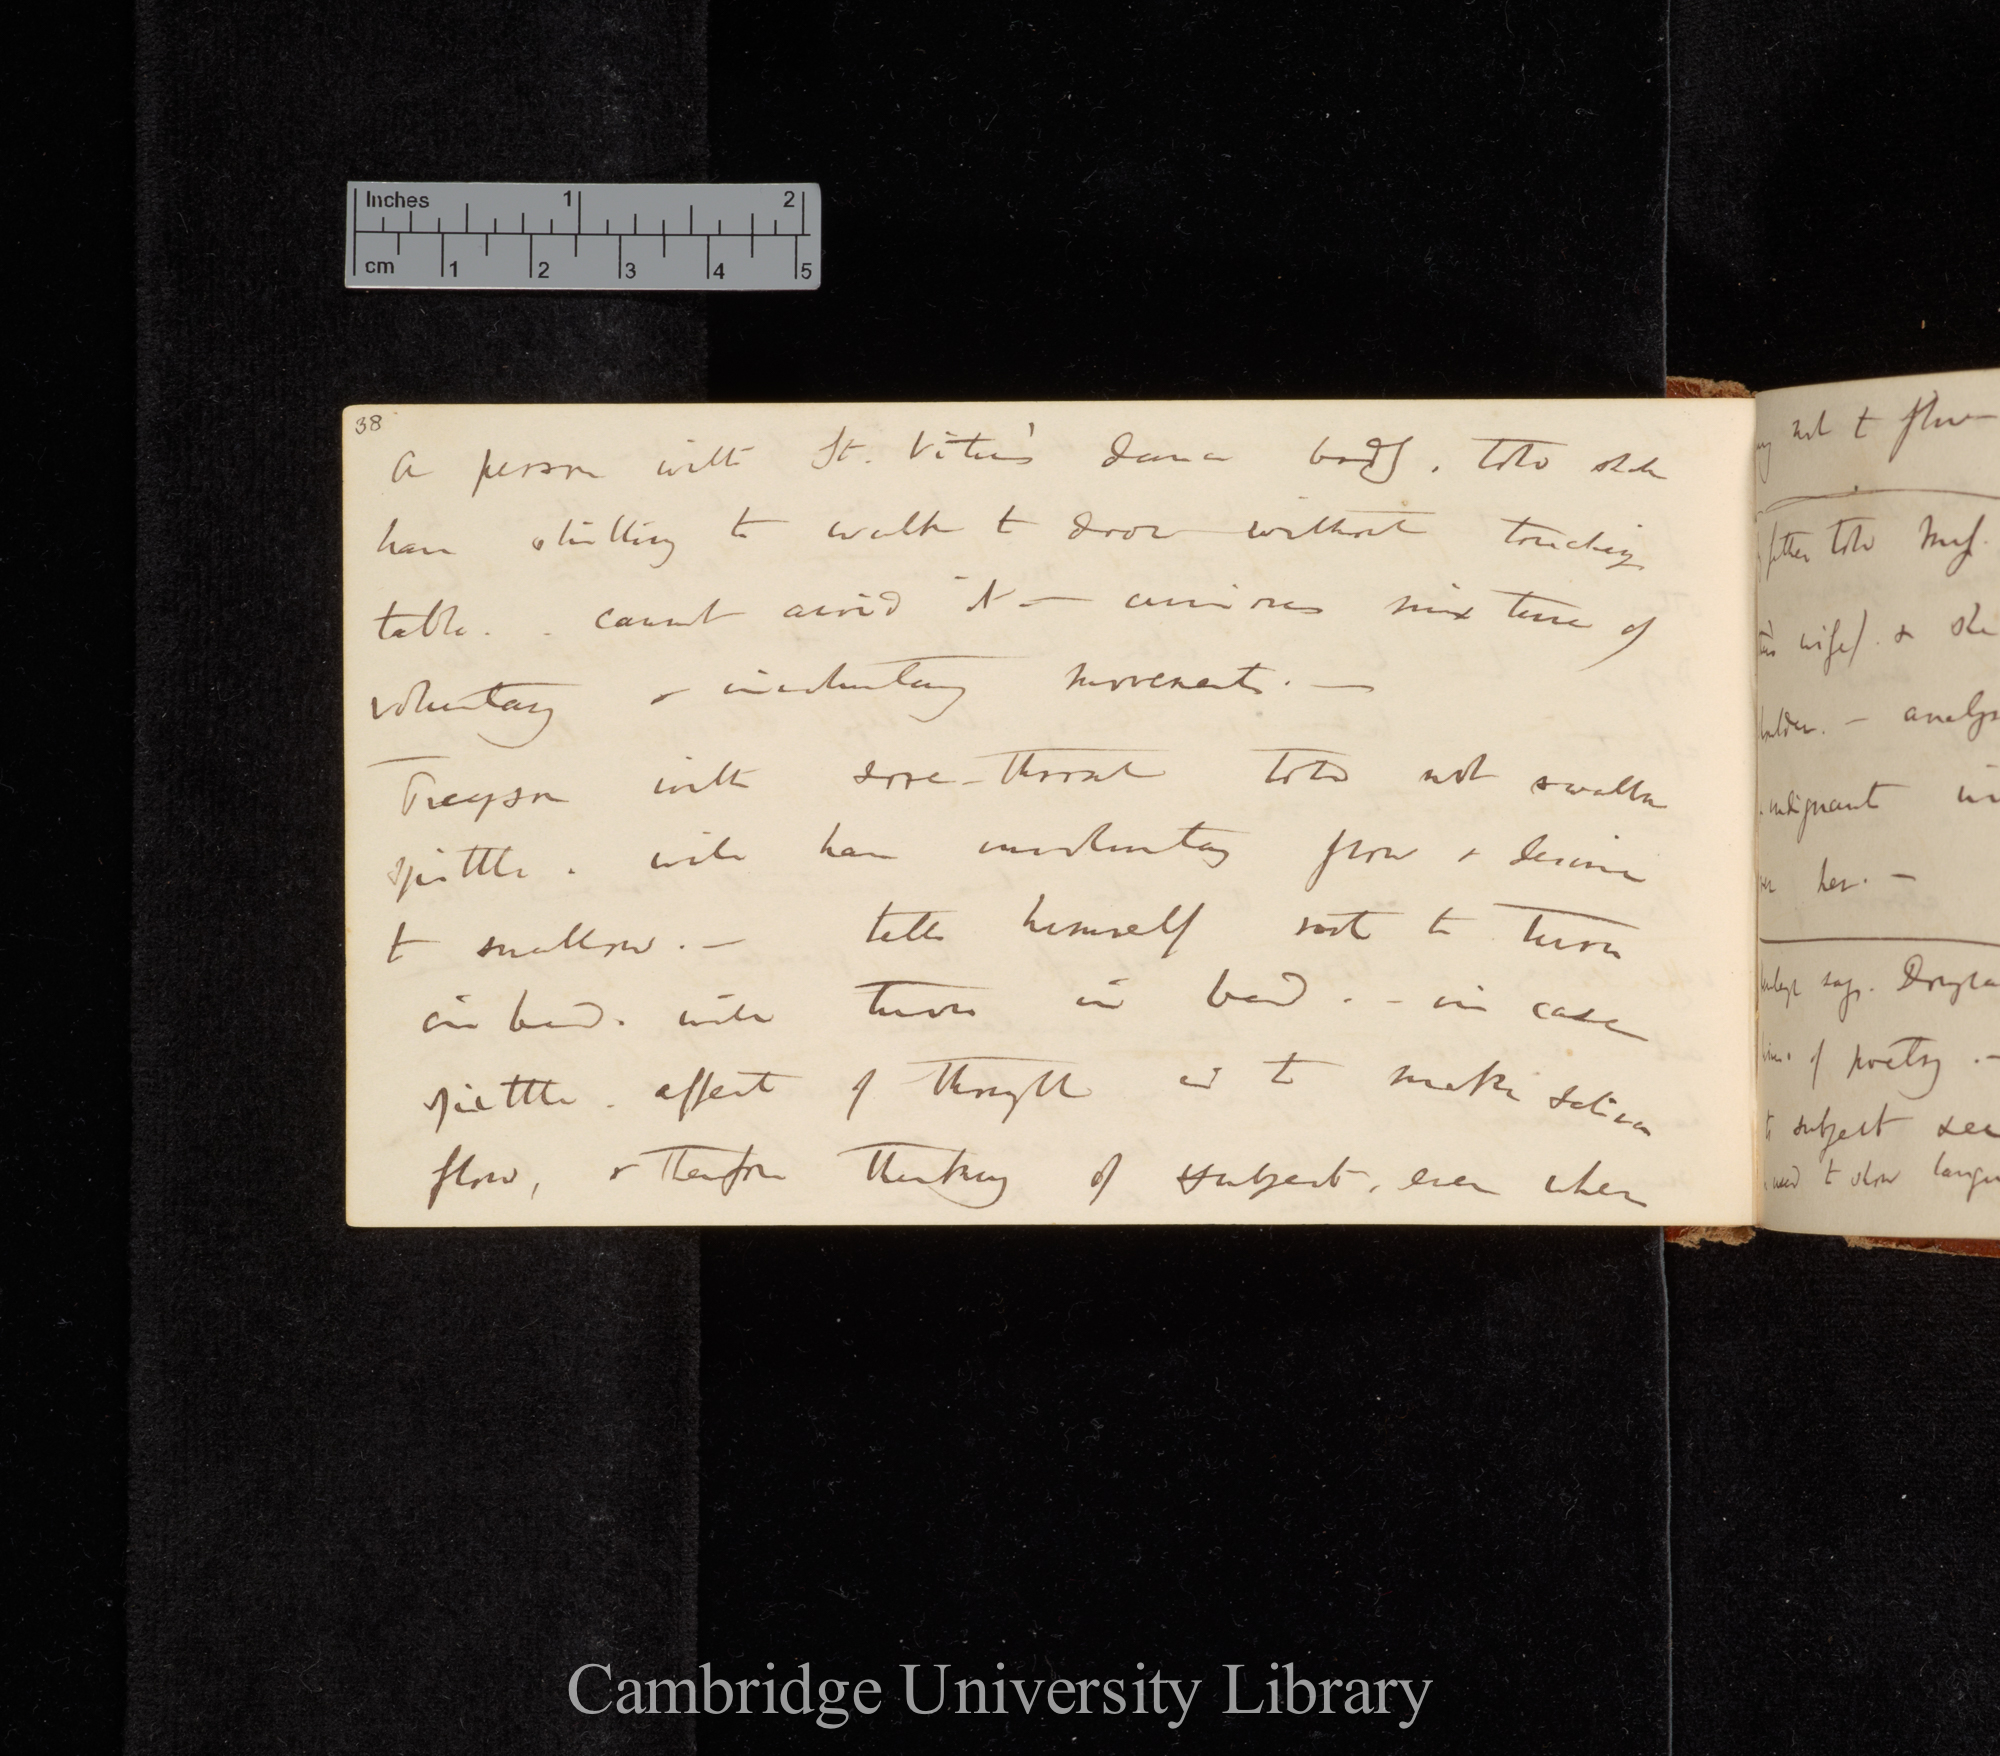 Inches 1 2
cm 1 2 3 4 5
38
A person with St. Vitus's dance badly. told she
have shilling to walk to door without touching
table. cannot avoid it — curious mixture of
voluntary & involuntary movements. —
Person with sore-throat told not swallow
spittle. will have involuntary flow & desire
to swallow. — tells himself not to turn
in bed. will turn in bed. — in case
spittle. effect of thought is to make saliva
flow, & therefore thinking of subject, even when
not to flow
father told
wife). & she
shoulder. —
indignant
her. —
says.
of poetry. —
to subject
to show
Cambridge University Library